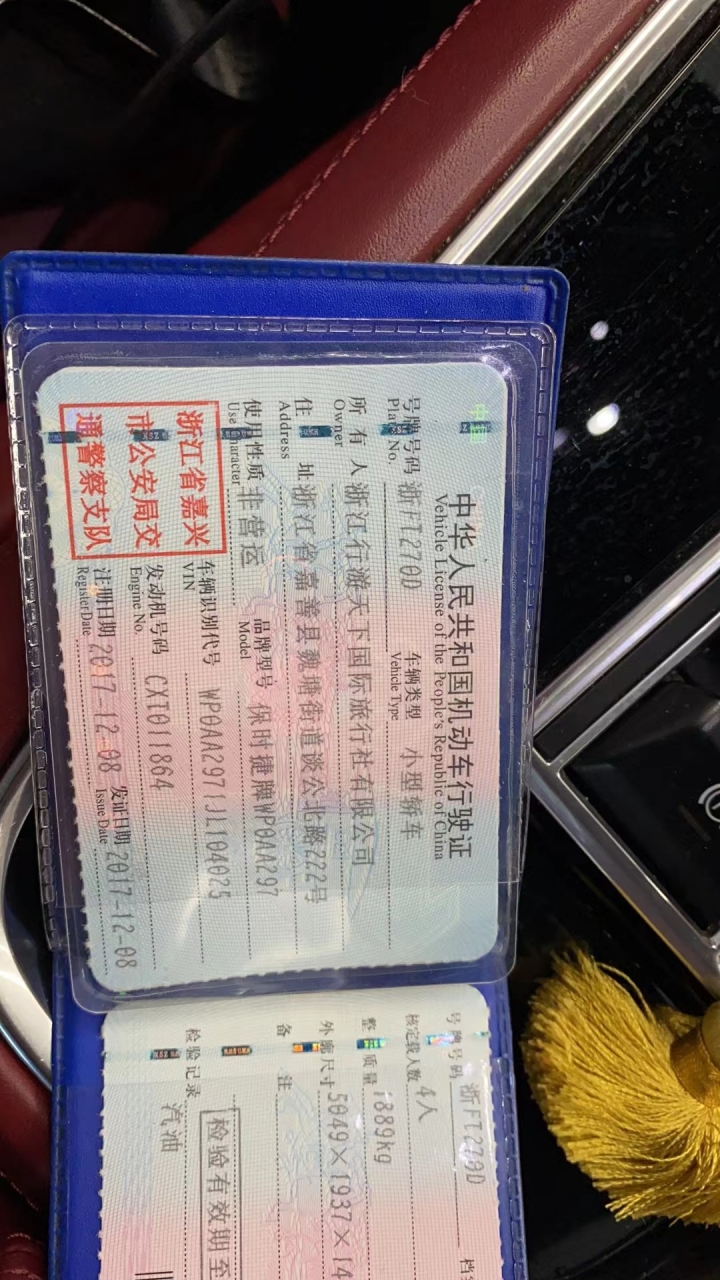 中华人民共和国机动车行驶证
Vehicle License of the People's Republic of China
号牌号码 浙FT270D 车辆类型 小型轿车
Plate No. Vehicle Type
所有人 浙江行游天下国际旅行社有限公司
Owner
住址 浙江省嘉善县魏塘街道谈公北路222号
Address
使用性质 非营运 品牌型号 保时捷牌WP0AA297
Use Character Model
浙江省嘉兴
市公安局交
通警察支队
车辆识别代号 WP0AA2971JL104025
VIN
发动机号码 CXT011864
Engine No.
注册日期 2017-12-08 发证日期 2017-12-08
Register Date Issue Date
号牌号码 浙FT270D
核定载人数 4人
整备质量 1889kg
外廓尺寸 5049×1937×14
备注
检验有效期至
检验记录 汽油